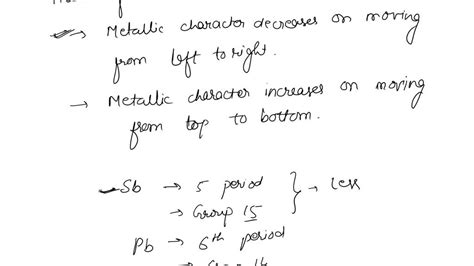 → Metallic character decreases on moving
from left to right.
→ Metallic character increases on moving
from top to bottom.
Sb → 5 period
→ Group 15 } → less
Pb → 6th period
→ 14